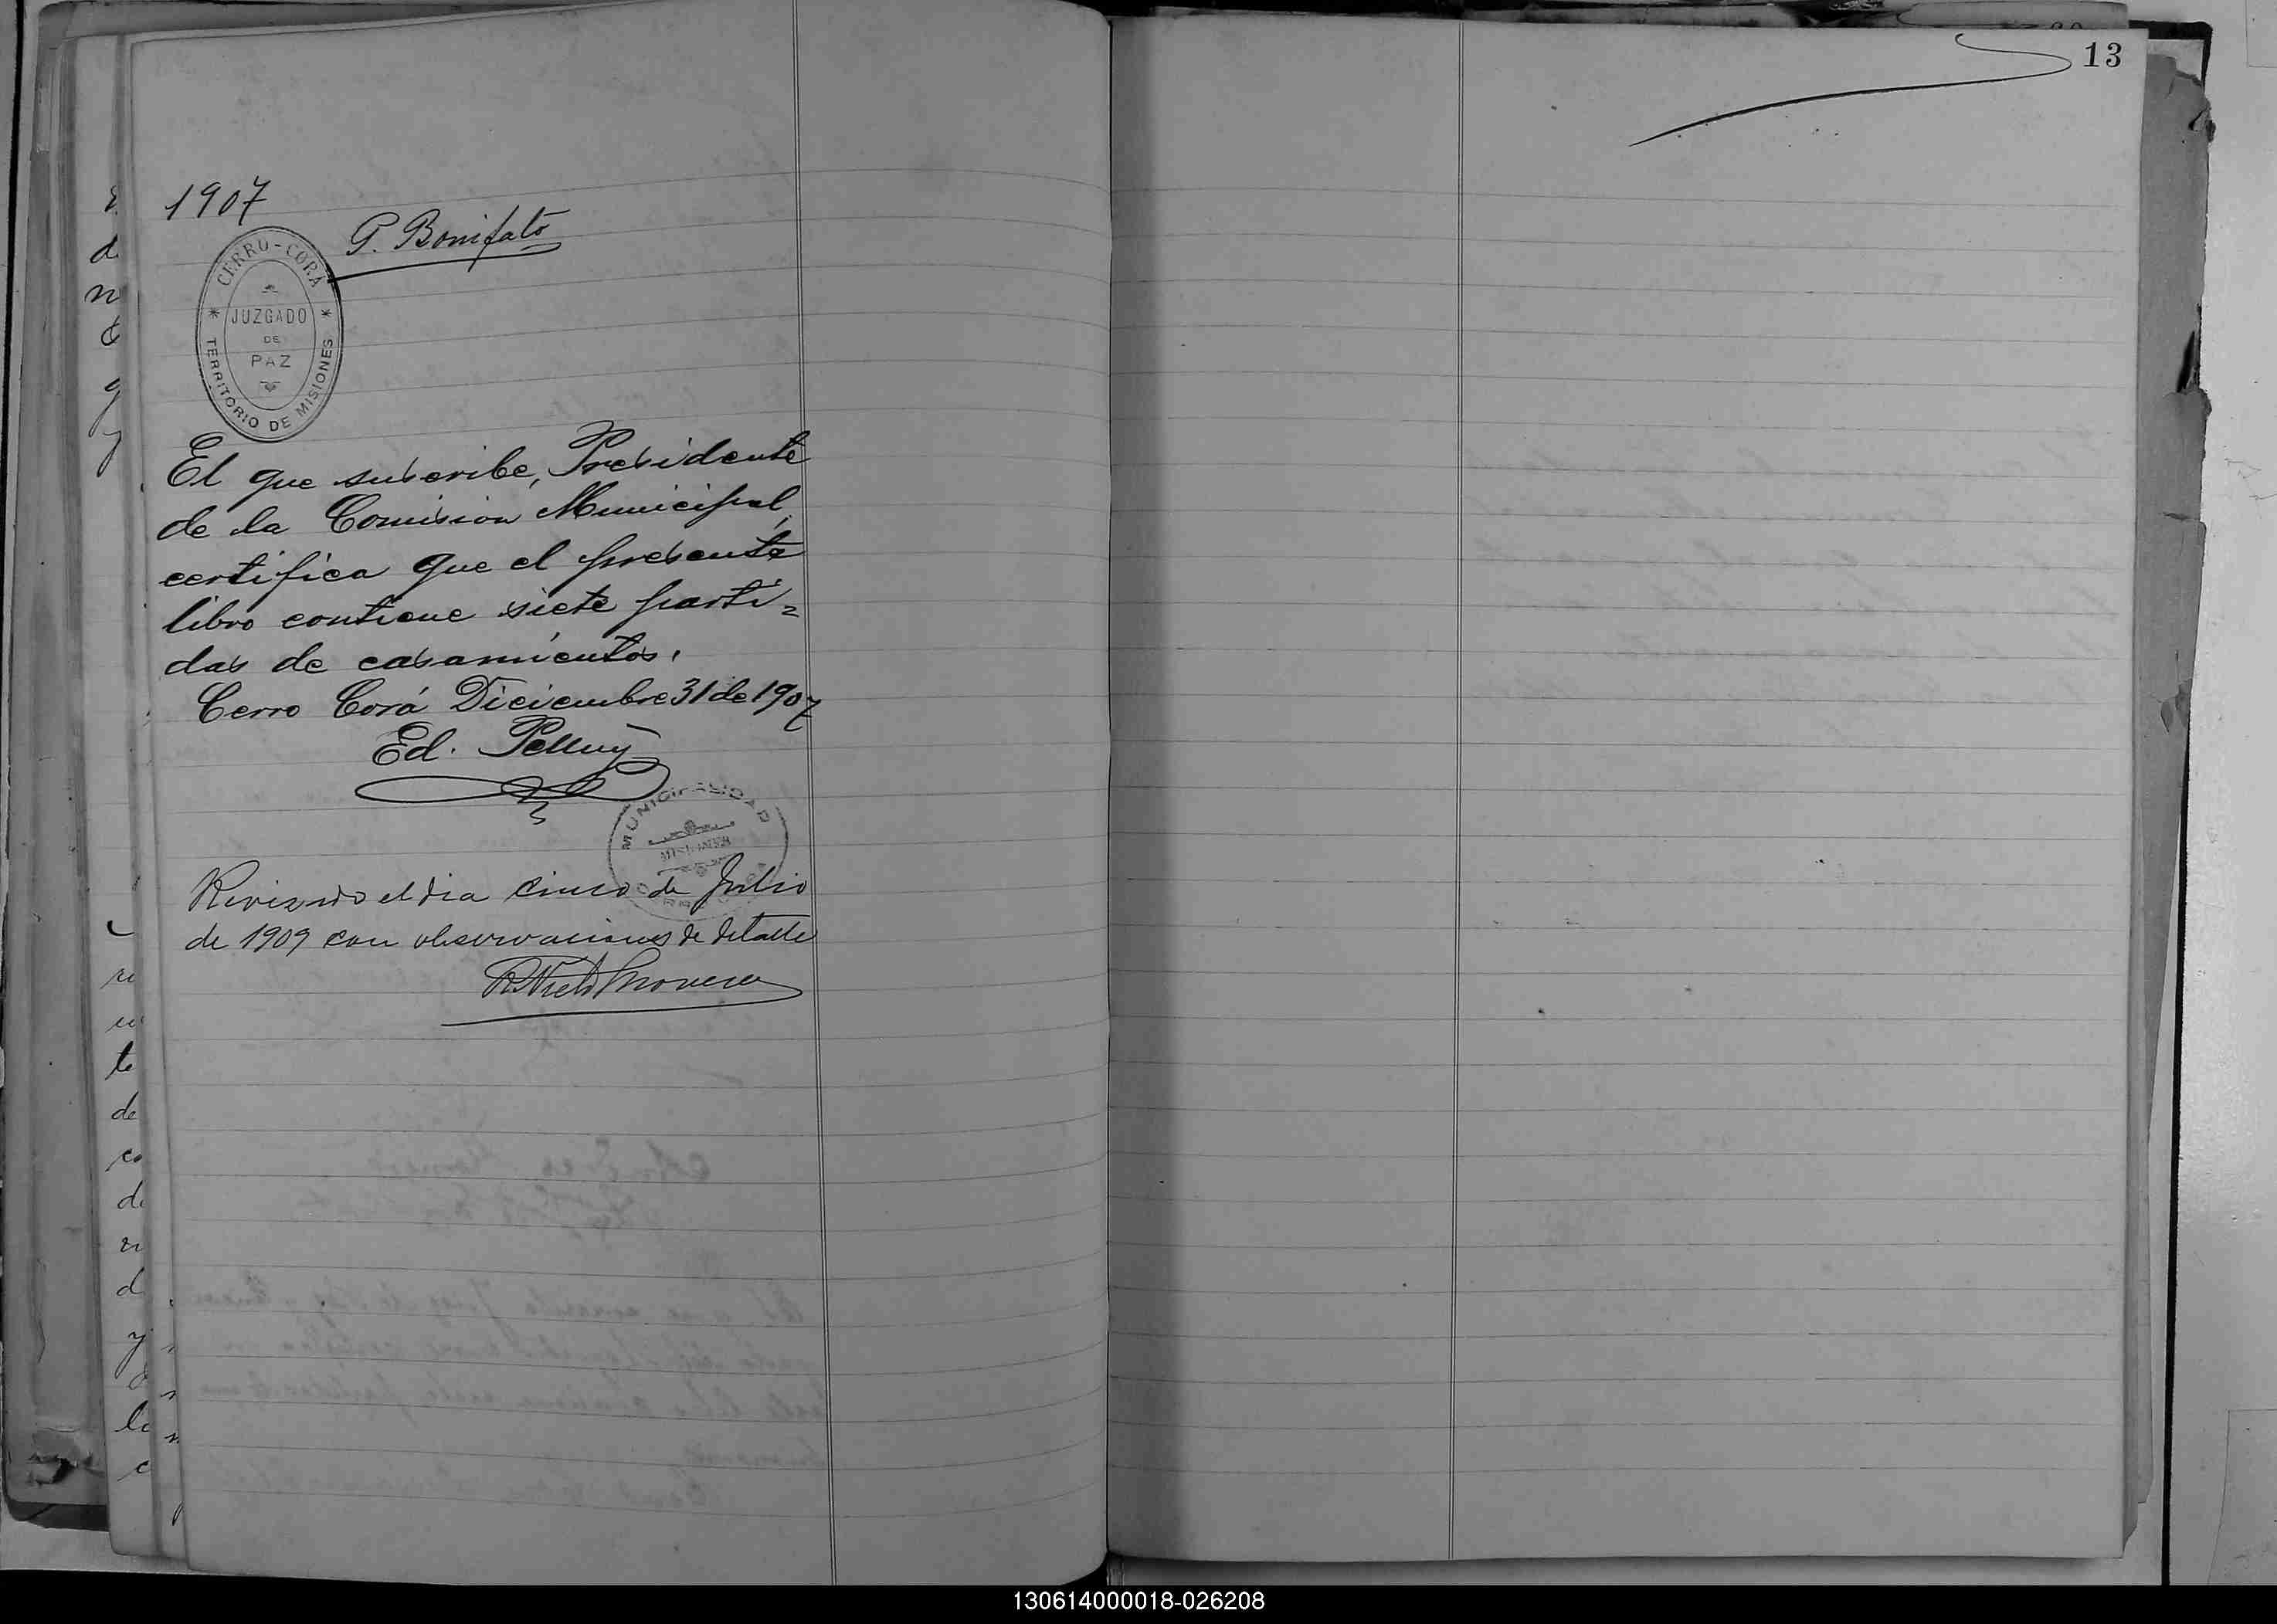 13
1907
G. Bonifato
CERRO-CORÁ
JUZGADO
DE
PAZ
TERRITORIO DE MISIONES
El que suscribe, Presidente
de la Comisión Municipal,
certifica que el presente
libro contiene siete parti=
das de casamientos.
Cerro Corá Diciembre 31 de 1907
Ed. Pelluy
MUNICIPALIDAD
MISIONES
Revisado el dia cinco de Julio
de 1909 con observaciones de detalle
130614000018-026208